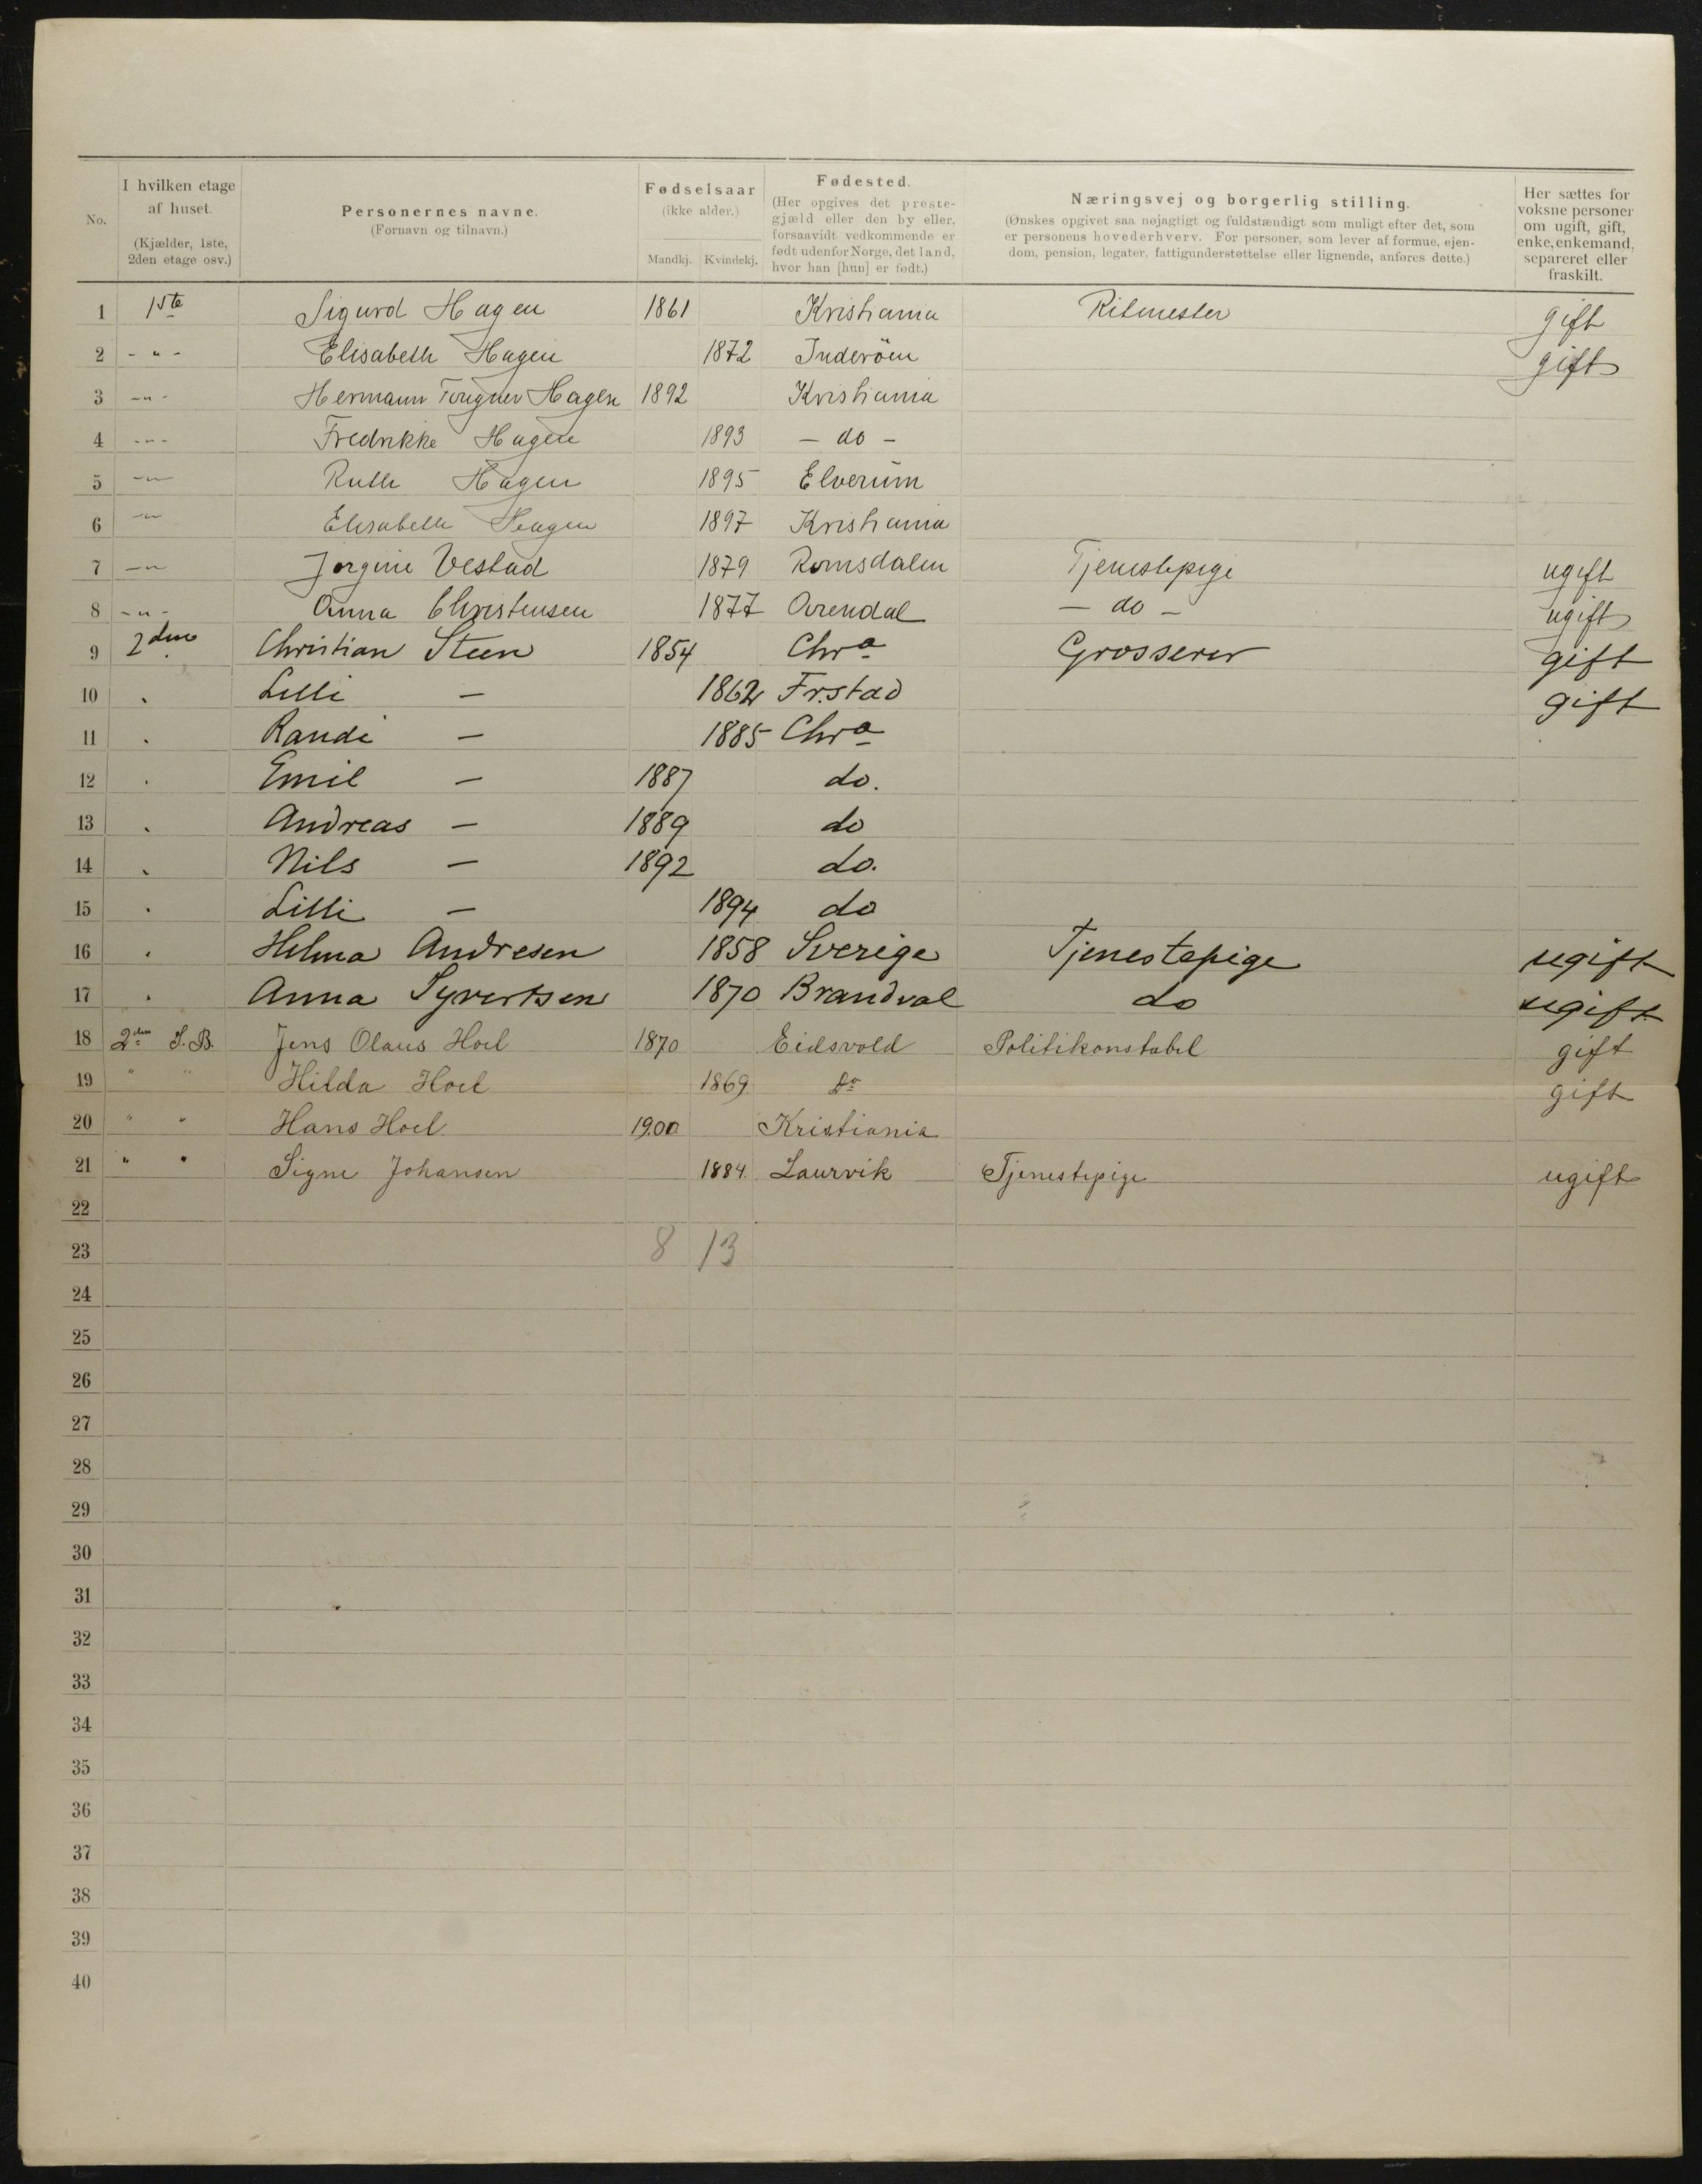 No.
I hvilken etage af huset. (Kjælder, 1ste, 2den etage osv.)
Personernes navne. (Fornavn og tilnavn.)
Fødselsaar (ikke alder.) Mandkj. Kvindekj.
Fødested. (Her opgives det prestegjæld eller den by eller, forsaavidt vedkommende er født udenfor Norge, det land, hvor han [hun] er født.)
Næringsvej og borgerlig stilling. (Ønskes opgivet saa nøjagtigt og fuldstændigt som muligt efter det, som er personens hovederhverv. For personer, som lever af formue, ejendom, pension, legater, fattigunderstøttelse eller lignende, anføres dette.)
Her sættes for voksne personer om ugift, gift, enke, enkemand, separeret eller fraskilt.
1 1ste Sigurd Hagen 1861 Kristiania Ritmester gift
2 - " - Elisabeth Hagen 1872 Inderöen gift
3 - " - Hermann Hagen 1892 Kristiania
4 - " - Fredrikke Hagen 1893 - do -
5 - " - Ruth Hagen 1895 Elverum
6 - " - Elisabeth Hagen 1897 Kristiania
7 - " - Jorgine Vestad 1879 Romsdalen Tjenestepige ugift
8 - " - Anna Christensen 1877 Arendal - do - ugift
9 2den Christian Steen 1854 Chra Grosserer gift
10 " Lilli - 1862 Fr.stad gift
11 " Randi - 1885 Chra
12 " Emil - 1887 do.
13 " Andreas - 1889 do
14 " Nils - 1892 do.
15 " Lilli - 1894 do
16 " Helma Andresen 1858 Sverige Tjenestepige ugift
17 " Anna Syvertsen 1870 Brandval do ugift
18 2den S. B. Jens Olaus Hoel 1870 Eidsvold Politikonstabel gift
19 " " Hilda Hoel 1869 Do gift
20 " " Hans Hoel 1900 Kristiania
21 " " Signe Johansen 1884. Laurvik Tjenestepige ugift
22
23 8 13
24
25
26
27
28
29
30
31
32
33
34
35
36
37
38
39
40